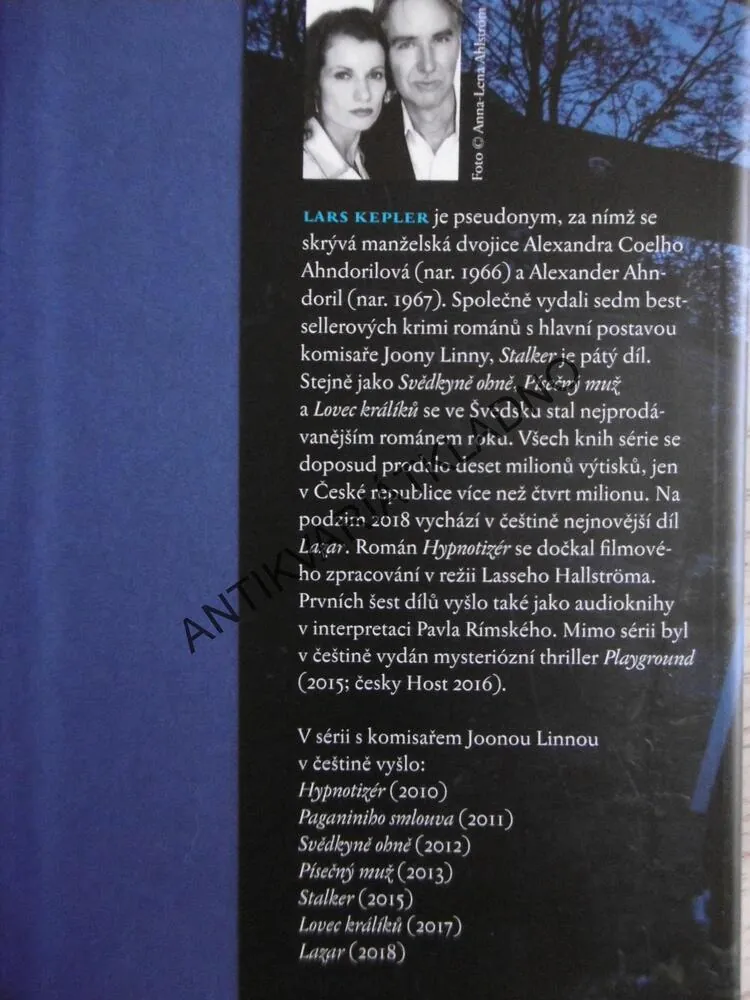 Foto © Anna-Lena Ahlström
LARS KEPLER je pseudonym, za nímž se
skrývá manželská dvojice Alexandra Coelho
Ahndorilová (nar. 1966) a Alexander Ahn-
doril (nar. 1967). Společně vydali sedm best-
sellerových krimi románů s hlavní postavou
komisaře Joony Linny, Stalker je pátý díl.
Stejně jako Svědkyně ohně, Písečný muž
a Lovec králíků se ve Švédsku stal nejprodá-
vanějším románem roku. Všech knih série se
doposud prodalo deset milionů výtisků, jen
v České republice více než čtvrt milionu. Na
podzim 2018 vychází v češtině nejnovější díl
Lazar. Román Hypnotizér se dočkal filmové-
ho zpracování v režii Lasseho Hallströma.
Prvních šest dílů vyšlo také jako audioknihy
v interpretaci Pavla Rímského. Mimo sérii byl
v češtině vydán mysteriózní thriller Playground
(2015; česky Host 2016).
V sérii s komisařem Joonou Linnou
v češtině vyšlo:
Hypnotizér (2010)
Paganiniho smlouva (2011)
Svědkyně ohně (2012)
Písečný muž (2013)
Stalker (2015)
Lovec králíků (2017)
Lazar (2018)
ANTIKVARIÁT KLADNO